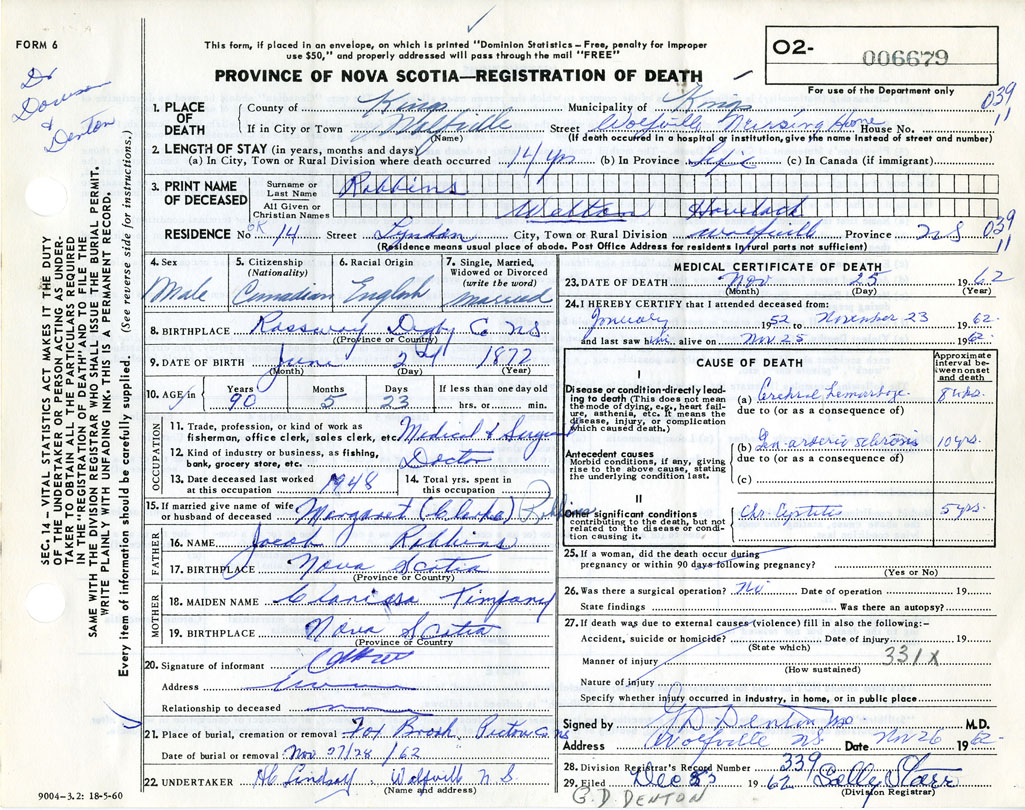 FORM 6
This form, if placed in an envelope, on which is printed "Dominion Statistics – Free, penalty for improper
use $50," and properly addressed will pass through the mail "FREE"
PROVINCE OF NOVA SCOTIA—REGISTRATION OF DEATH
O2- 006679
For use of the Department only
Dr
Denton
SEC. 14 – VITAL STATISTICS ACT MAKES IT THE DUTY
OF THE UNDERTAKER OR PERSON ACTING AS UNDER-
TAKER TO OBTAIN ALL THE PARTICULARS REQUIRED
IN THE "REGISTRATION OF DEATH" AND TO FILE THE
SAME WITH THE DIVISION REGISTRAR WHO SHALL ISSUE THE BURIAL PERMIT.
WRITE PLAINLY WITH UNFADING INK. THIS IS A PERMANENT RECORD.
Every item of information should be carefully supplied. (See reverse side for instructions.)
1. PLACE OF DEATH
County of Kings Municipality of Kings 039
11
If in City or Town Wolfville (Name) Street Wolfville Nursing Home House No.
(If death occurred in a hospital or institution, give the name instead of street and number)
2. LENGTH OF STAY (in years, months and days)
(a) In City, Town or Rural Division where death occurred 14 yrs (b) In Province Life (c) In Canada (if immigrant)
3. PRINT NAME OF DECEASED
Surname or Last Name Robbins
All Given or Christian Names Walton Havelock
RESIDENCE No. 14 Street City, Town or Rural Division Wolfville Province NS 039
11
(Residence means usual place of abode. Post Office Address for residents in rural parts not sufficient)
4. Sex Male
5. Citizenship (Nationality) Canadian
6. Racial Origin English
7. Single, Married, Widowed or Divorced (write the word) Married
8. BIRTHPLACE Rossway Digby Co NS
(Province or Country)
9. DATE OF BIRTH June 2nd 1872
(Month) (Day) (Year)
10. AGE in Years 90 Months 5 Days 23 If less than one day old
hrs. or min.
OCCUPATION
11. Trade, profession, or kind of work as
fisherman, office clerk, sales clerk, etc. Medical & Surgeon
12. Kind of industry or business, as fishing,
bank, grocery store, etc. Doctor
13. Date deceased last worked
at this occupation 1948
14. Total yrs. spent in
this occupation
15. If married give name of wife
or husband of deceased Margaret (Clarke) Robbins
FATHER
16. NAME Jacob Robbins
17. BIRTHPLACE Nova Scotia
(Province or Country)
MOTHER
18. MAIDEN NAME Clarissa Timpany
19. BIRTHPLACE Nova Scotia
(Province or Country)
20. Signature of informant
Address
Relationship to deceased
21. Place of burial, cremation or removal Fox Brook Pictou Co NS
Date of burial or removal Nov. 27/28 /62
22. UNDERTAKER HC Lindsay Wolfville N.S.
(Name and address)
9004-3.2: 18-5-60
MEDICAL CERTIFICATE OF DEATH
23. DATE OF DEATH Nov 25 1962
(Month) (Day) (Year)
24. I HEREBY CERTIFY that I attended deceased from:
January 1952 to November 23 1962
and last saw him alive on Nov 23 1962
CAUSE OF DEATH
Approximate interval between onset and death
I
Disease or condition-directly lead-
ing to death (This does not mean
the mode of dying, e.g., heart fail-
ure, asthenia, etc. It means the
disease, injury, or complication
which caused death.)
(a) Cerebral Hemorrhage
due to (or as a consequence of)
Antecedent causes
Morbid conditions, if any, giving
rise to the above cause, stating
the underlying condition last.
(b) Gen. arterio sclerosis 10 yrs.
due to (or as a consequence of)
(c)
II
Other significant conditions
contributing to the death, but not
related to the disease or condi-
tion causing it.
Chr. Cystitis 5 yrs.
25. If a woman, did the death occur during
pregnancy or within 90 days following pregnancy?
(Yes or No)
26. Was there a surgical operation? No Date of operation 19
State findings Was there an autopsy?
27. If death was due to external causes (violence) fill in also the following:–
Accident, suicide or homicide? Date of injury 19
(State which)
Manner of injury 331X
(How sustained)
Nature of injury
Specify whether injury occurred in industry, in home, or in public place
Signed by G D Denton MD M.D.
Address Wolfville NS Date Nov 26 1962
28. Division Registrar's Record Number 339
29. Filed Dec 1962 Starr
(Division Registrar)
G. D. DENTON